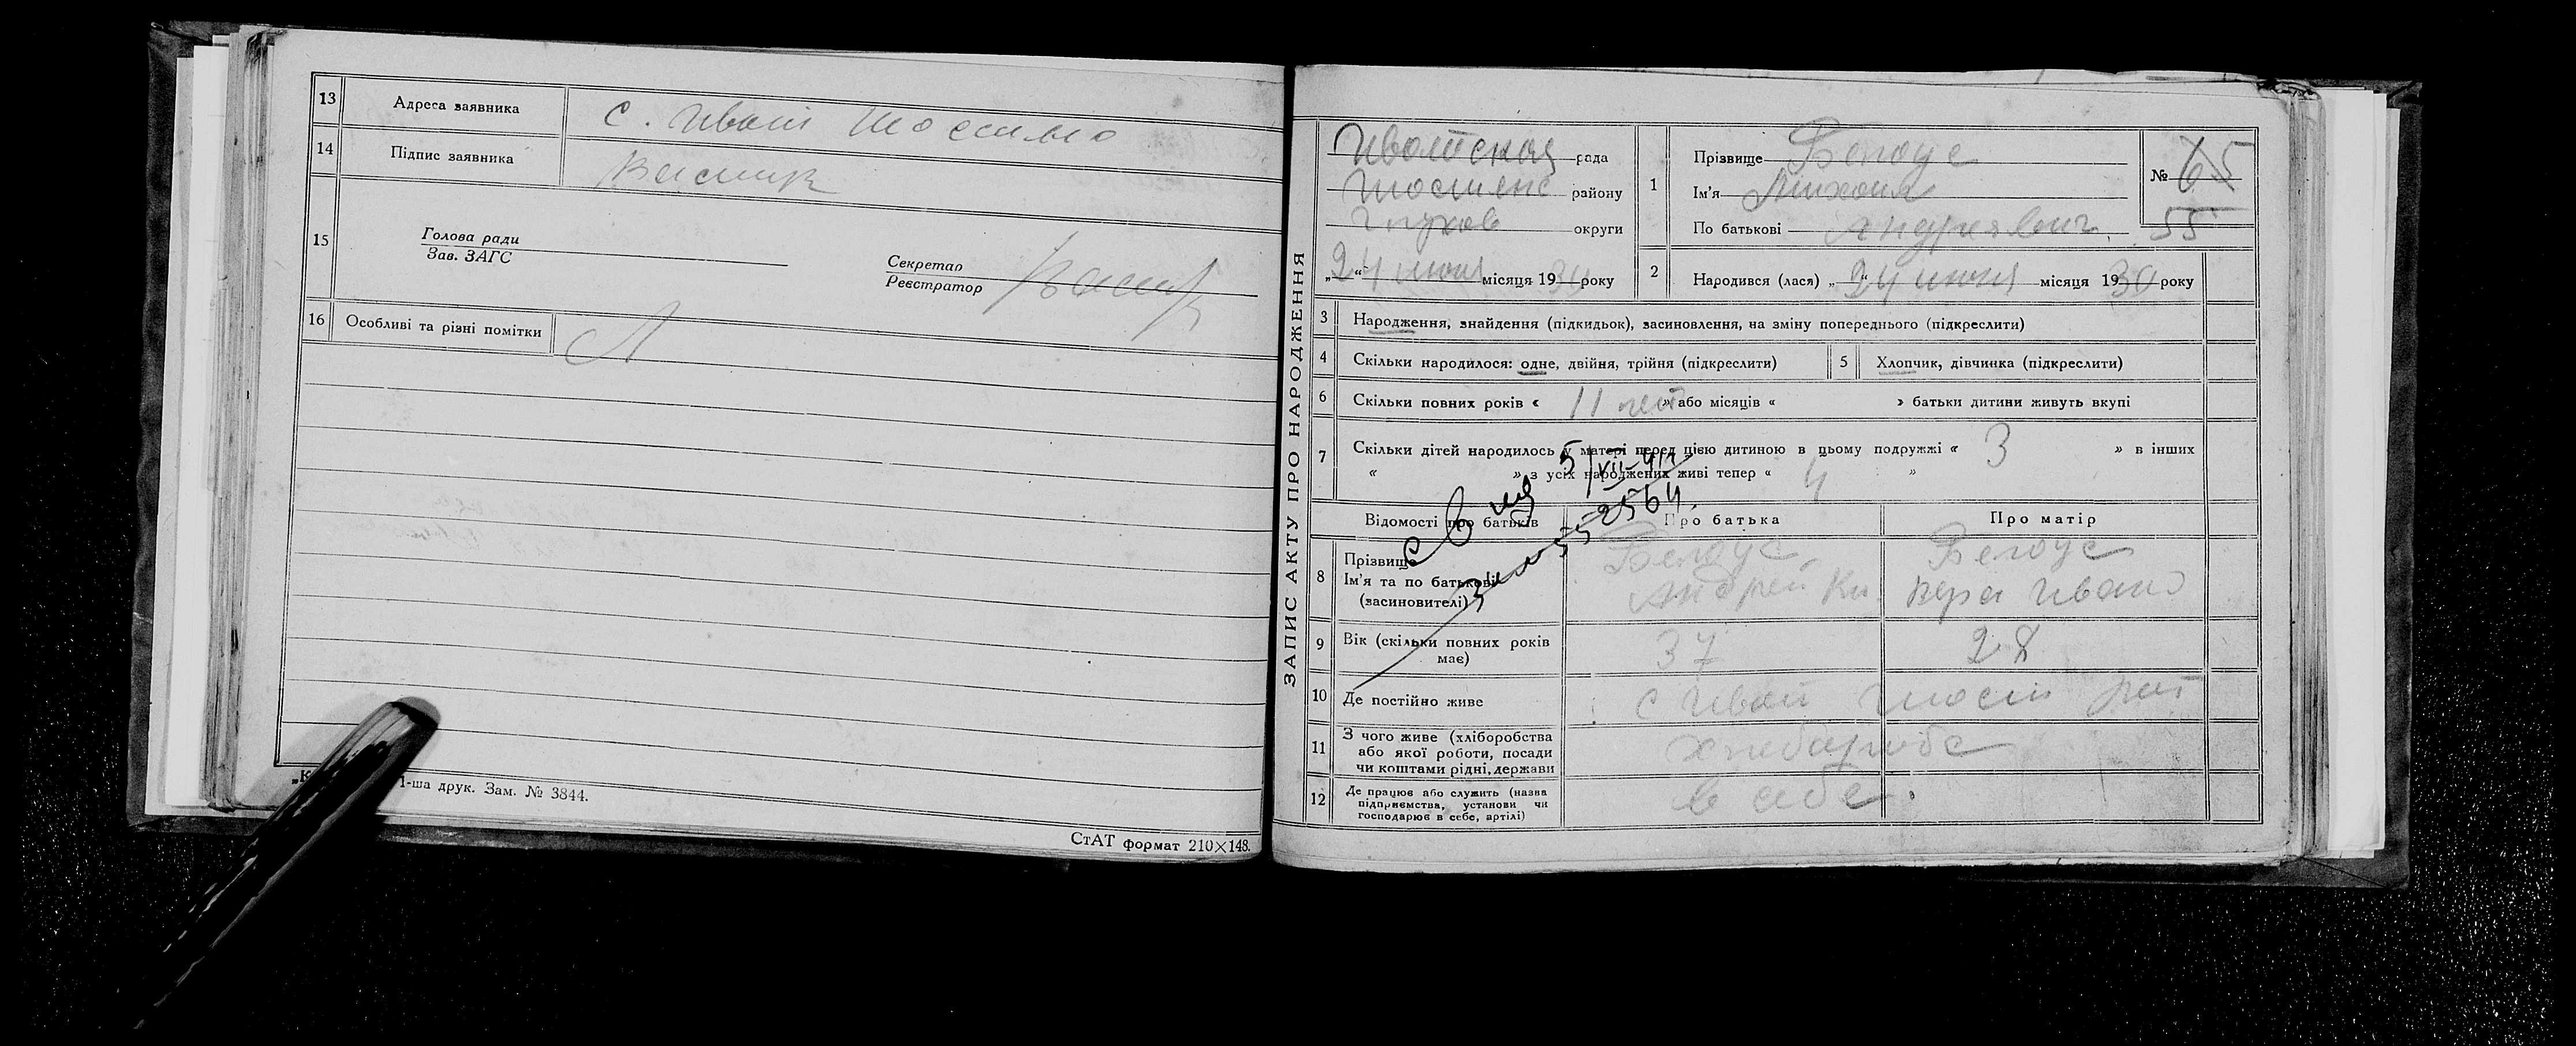 13 Адреса заявника с. Ивот
14 Підпис заявника
15 Голова ради
Зав. ЗАГС
Секретар
Реєстратор
16 Особливі та різні помітки
1-ша друк. Зам. № 3844.
СтАТ формат 210×148.
ЗАПИС АКТУ ПРО НАРОДЖЕННЯ
Ивотская рада
района району
Глухов округи
„24“ июня місяця 1930 року
1 Прізвище Белоус
Ім'я Михаил
По батькові Андреявич
№ 65
55
2 Народився (лася) „24“ июня місяця 1930 року
3 Народження, знайдення (підкидьок), засиновлення, на зміну попереднього (підкреслити)
4 Скільки народилося: одне, двійня, трійня (підкреслити)
5 Хлопчик, дівчинка (підкреслити)
6 Скільки повних років « 11 лет » або місяців « » батьки дитини живуть вкупі
7 Скільки дітей народилось у матері перед цією дитиною в цьому подружжі « 3 » в інших
« » з усіх народжених живі тепер « 4 »
Відомості про батьків
Про батька
Про матір
8 Прізвище
Ім'я та по батькові
(засиновителі)
Белоус
Андрей Ки
Белоус
Вера Ивано
9 Вік (скільки повних років
має)
37
28
10 Де постійно живе
с Ивот
11 З чого живе (хліборобства
або якої роботи, посади
чи коштами рідні, держави
хлебаробс
12 Де працює або служить (назва
підприємства, установи чи
господарює в себе, артілі)
в себе